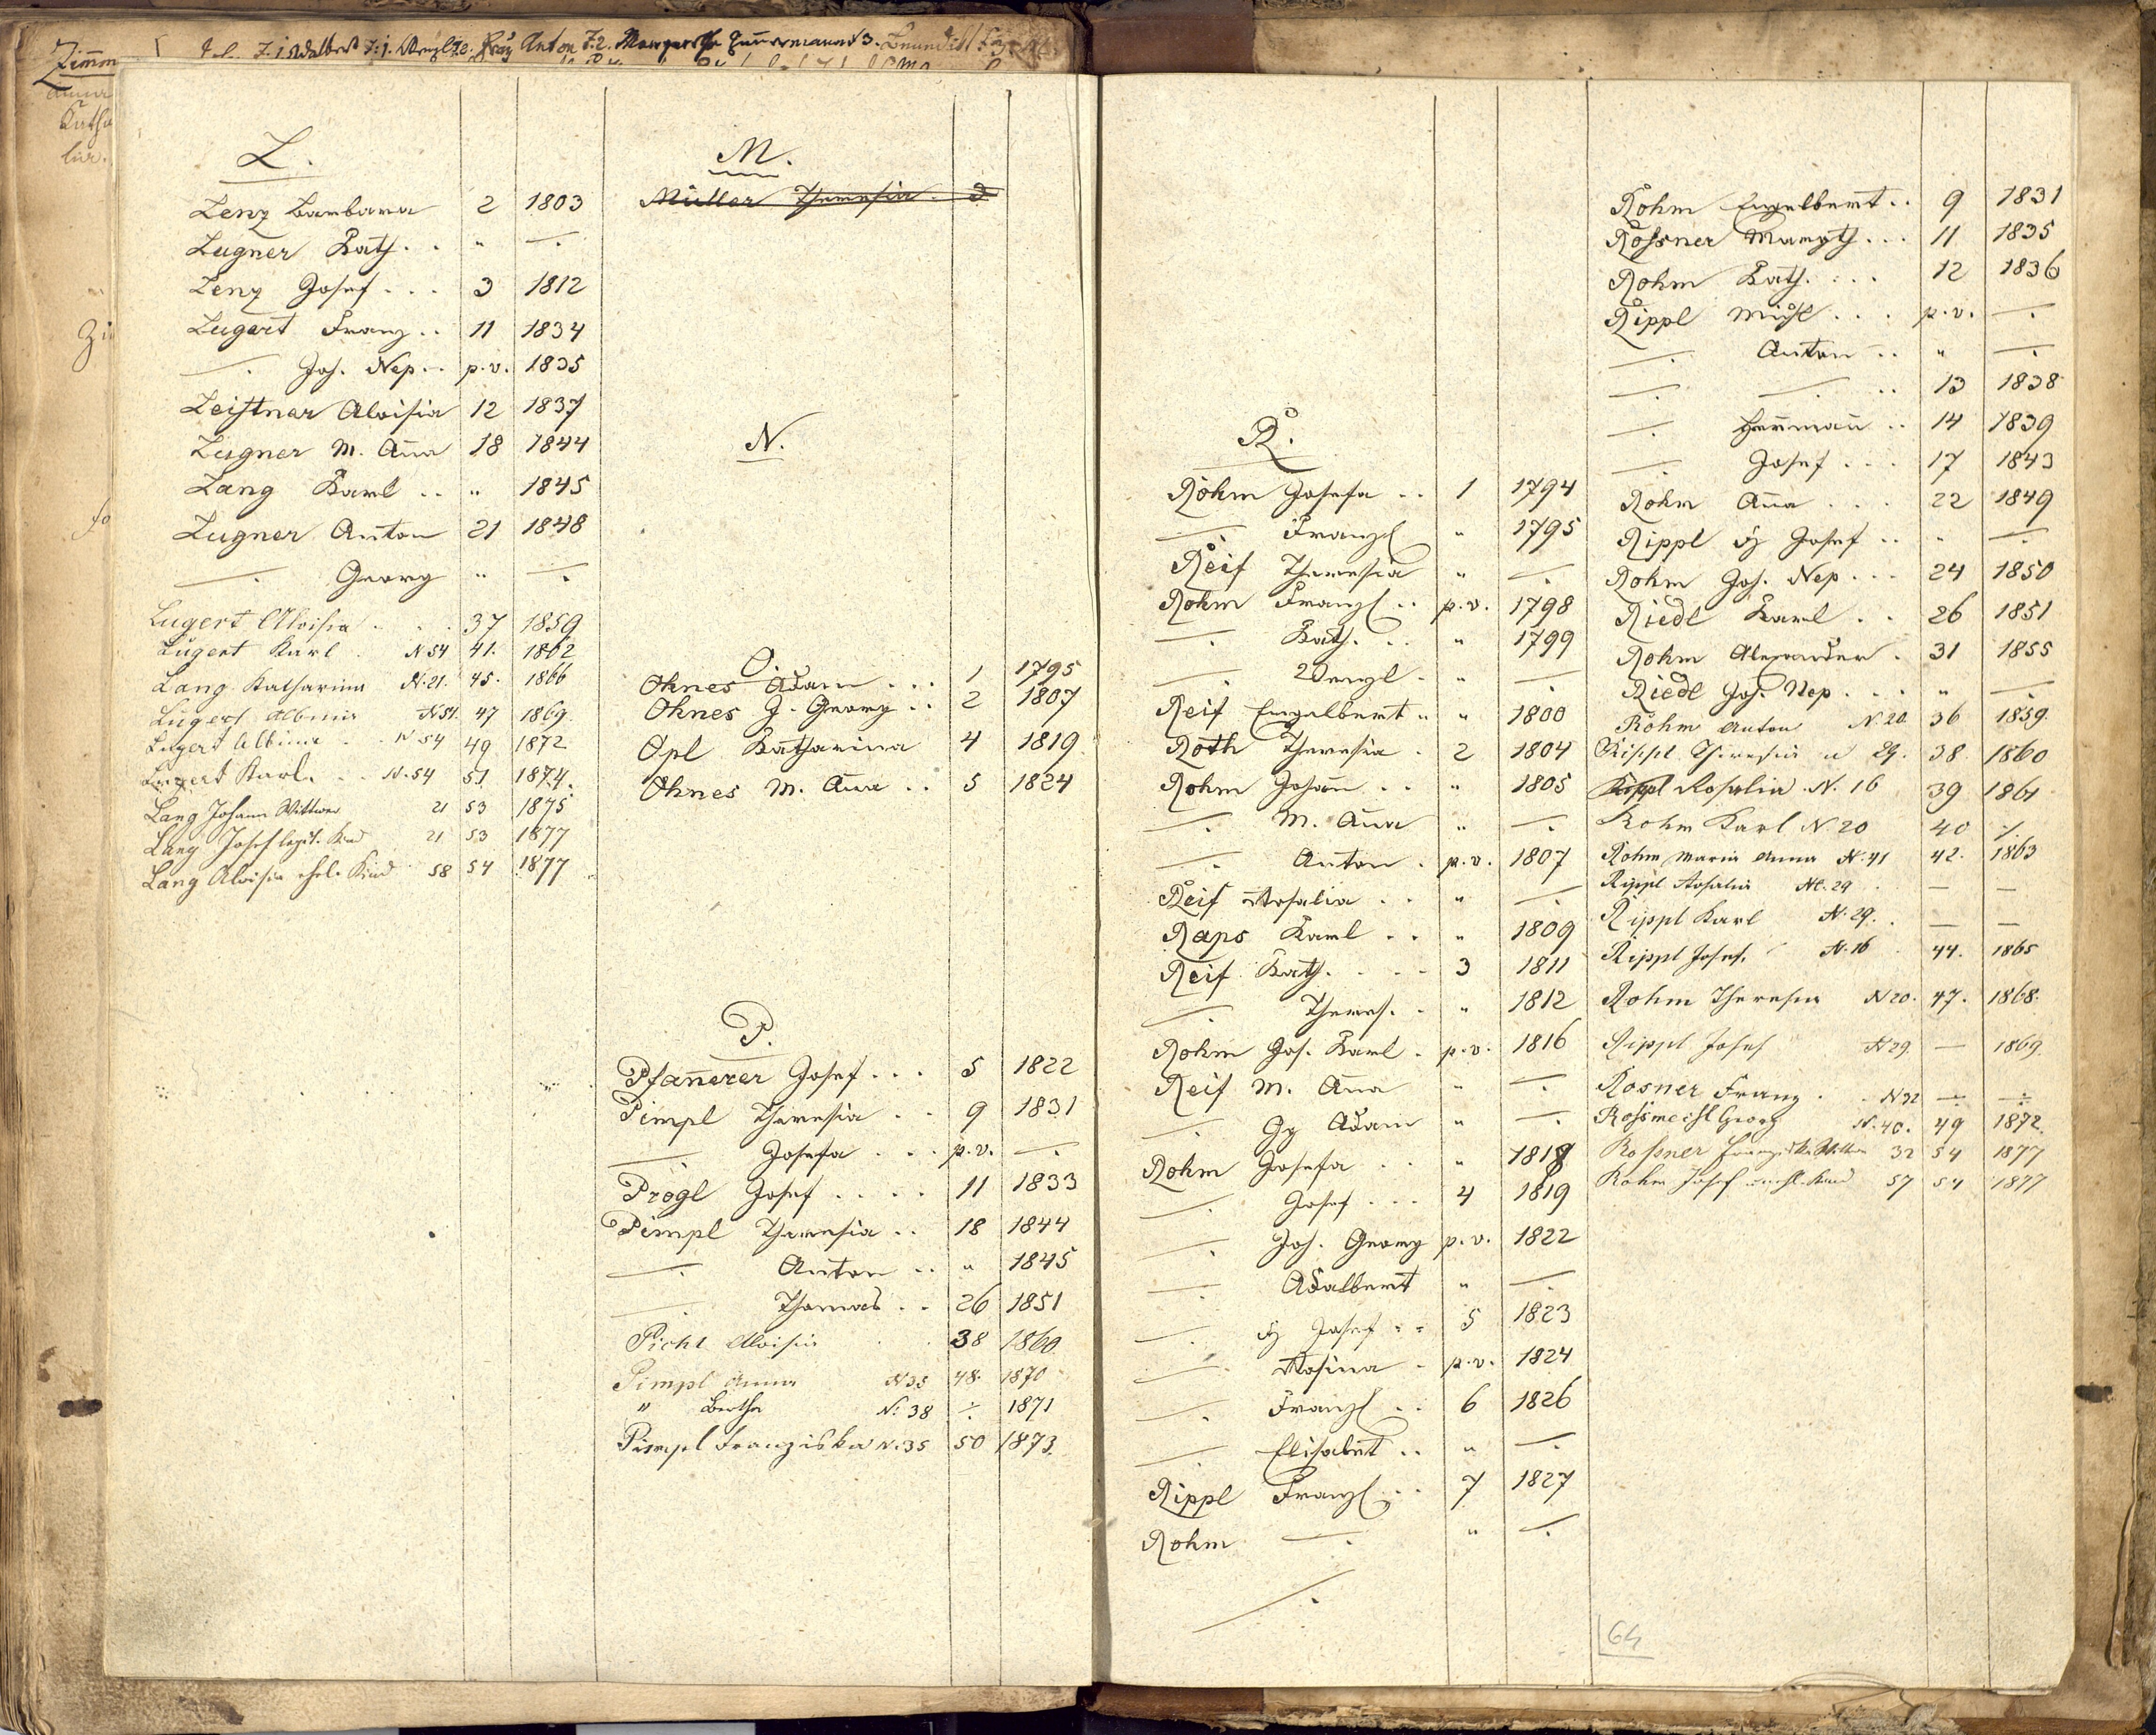 L.
Lenz Barbara 2 1803
Lugner Kath. . " —.
Lenz Josef . . . 3 1812
Lugert Franz . . 11 1834
—. Joh. Nep. . . p.v. 1835
Leistner Aloisia 12 1837
Lugner M. Aña 18 1844
Lang Karl . . " 1845
Lugner Anton 21 1848
—. Georg " —.
Lugert Aloisia . . . 37 1859
Lugert Karl . N 54 41. 1862
Lang Katharina N. 21. 45. 1866
Lugert Albina N 54. 47 1869.
Lugert Albina . . N 54 49 1872
Lugert Karl. . . N. 54 51 1874.
Lang Johann Wittwer 21 53 1875
Lang Josef legit. Kind 21 53 1877
Lang Aloisia ehel. Kind 58 54 1877
M.
Müller Theresia . 3
N.
O.
Ohnes Adam . . . 1 1795
Ohnes J. Georg . . 2 1807
Opl Katharina 4 1819
Ohnes M. Aña . . 5 1824
P.
Pfañerer Josef . . . 5 1822
Pimpl Theresia . . 9 1831
—. Josefa . . . p.v. —.
Prögl Josef . . . . 11 1833
Pimpl Theresia . . 18 1844
—. Anton . . " 1845
—. Thomas . . 26 1851
Picht Aloisia . . 38 1860
Pimpl Anna N 35 48. 1870
" Bertha N. 38 ÷ 1871
Pimpl Franziska N. 35 50 1873.
R.
Rohm Josefa . . 1 1794
—. Franz " 1795
Reif Theresia " —.
Rohm Franz . . p.v. 1798
—. Kath. . . " 1799
—. Wenzl . " —.
Reif Engelbert . . " 1800
Roth Theresia . 2 1804
Rohm Johañ . . " 1805
—. M. Aña " —.
—. Anton . p.v. 1807
Reif Rosalia . . " —.
Raps Karl . . " 1809
Reif Kath. . . . 3 1811
—. Theres. . " 1812
Rohm Jos. Karl . p.v. 1816
Reif M. Aña " —.
—. Gg Adam " —.
Rohm Josefa . . " 1818
—. Josef . . . 4 1819
—. Joh. Georg p.v. 1822
—. Adalbert " —.
—. Fz Josef . . 5 1823
—. Rosina . p.v. 1824
—. Franz . . 6 1826
—. Elisabet . . " —.
Rippl Franz . . 7 1827
Rohm —. " —.
—.
Rohm Engelbert . . 9 1831
Rossner Margth. . . 11 1835
Rohm Kath. . . . 12 1836
Rippl Michl . . . p.v. —.
—. Anton . . " —.
—. —. . . 13 1838
—. Hermañ . . 14 1839
—. Josef . . . 17 1843
Rohm Aña . . . 22 1849
Rippl Fz Josef . . " —.
Rohm Joh. Nep . . . 24 1850
Riedl Karl . . 26 1851
Rohm Alexander . 31 1855
Riedl Joh. Nep . . . " —.
Rohm Anton N. 20. 36 1859.
Rippl Theresia N 29. 38 1860
Rippl Rosalia N. 16 39 1861
Rohm Karl N 20 40 ·/.
Rohm Maria Anna N. 41 42. 1863
Rippl Rosalia N. 29 . — —
Rippl Karl N. 29. — —
Rippl Josef. N. 16 . 44. 1865
Rohm Theresia N 20. 47. 1868.
Rippl Josef N 29 — 1869.
Rosner Franz . . N 32 ÷ ÷
Georg N. 40. 49 1872.
Rossner 32 54 1877
Rohm Josef Kind 57 54 1877
64